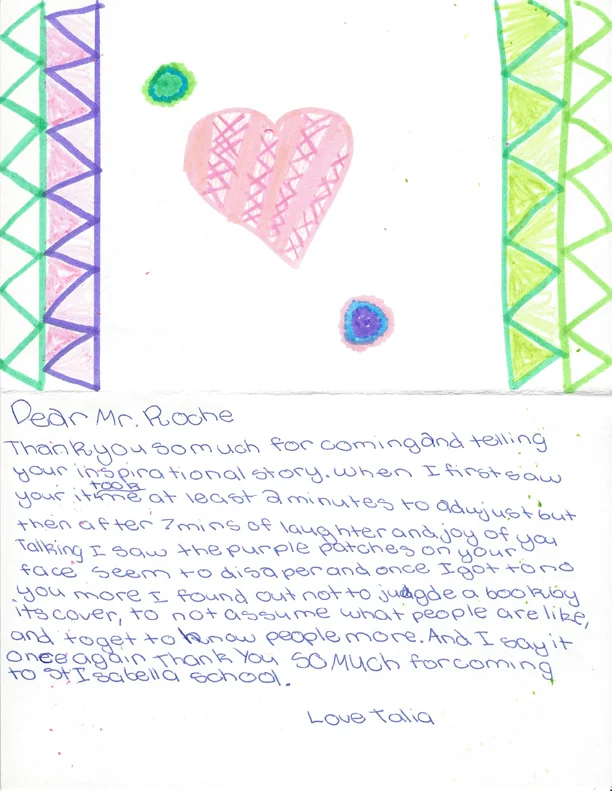 Dear Mr. Roche
Thank you so much for coming and telling
your inspirational story. When I first saw
took
your it me at least 2 minutes to adujust but
then after 7mins of laughter and joy of you
Talking I saw the purple patches on your
face seem to disaper and once I got to no
you more I found out not to juagde a book by
its cover, to not assume what people are like,
and to get to know people more. And I say it
once again Thank You SO MUCH for coming
to St Isabella school.
Love Talia